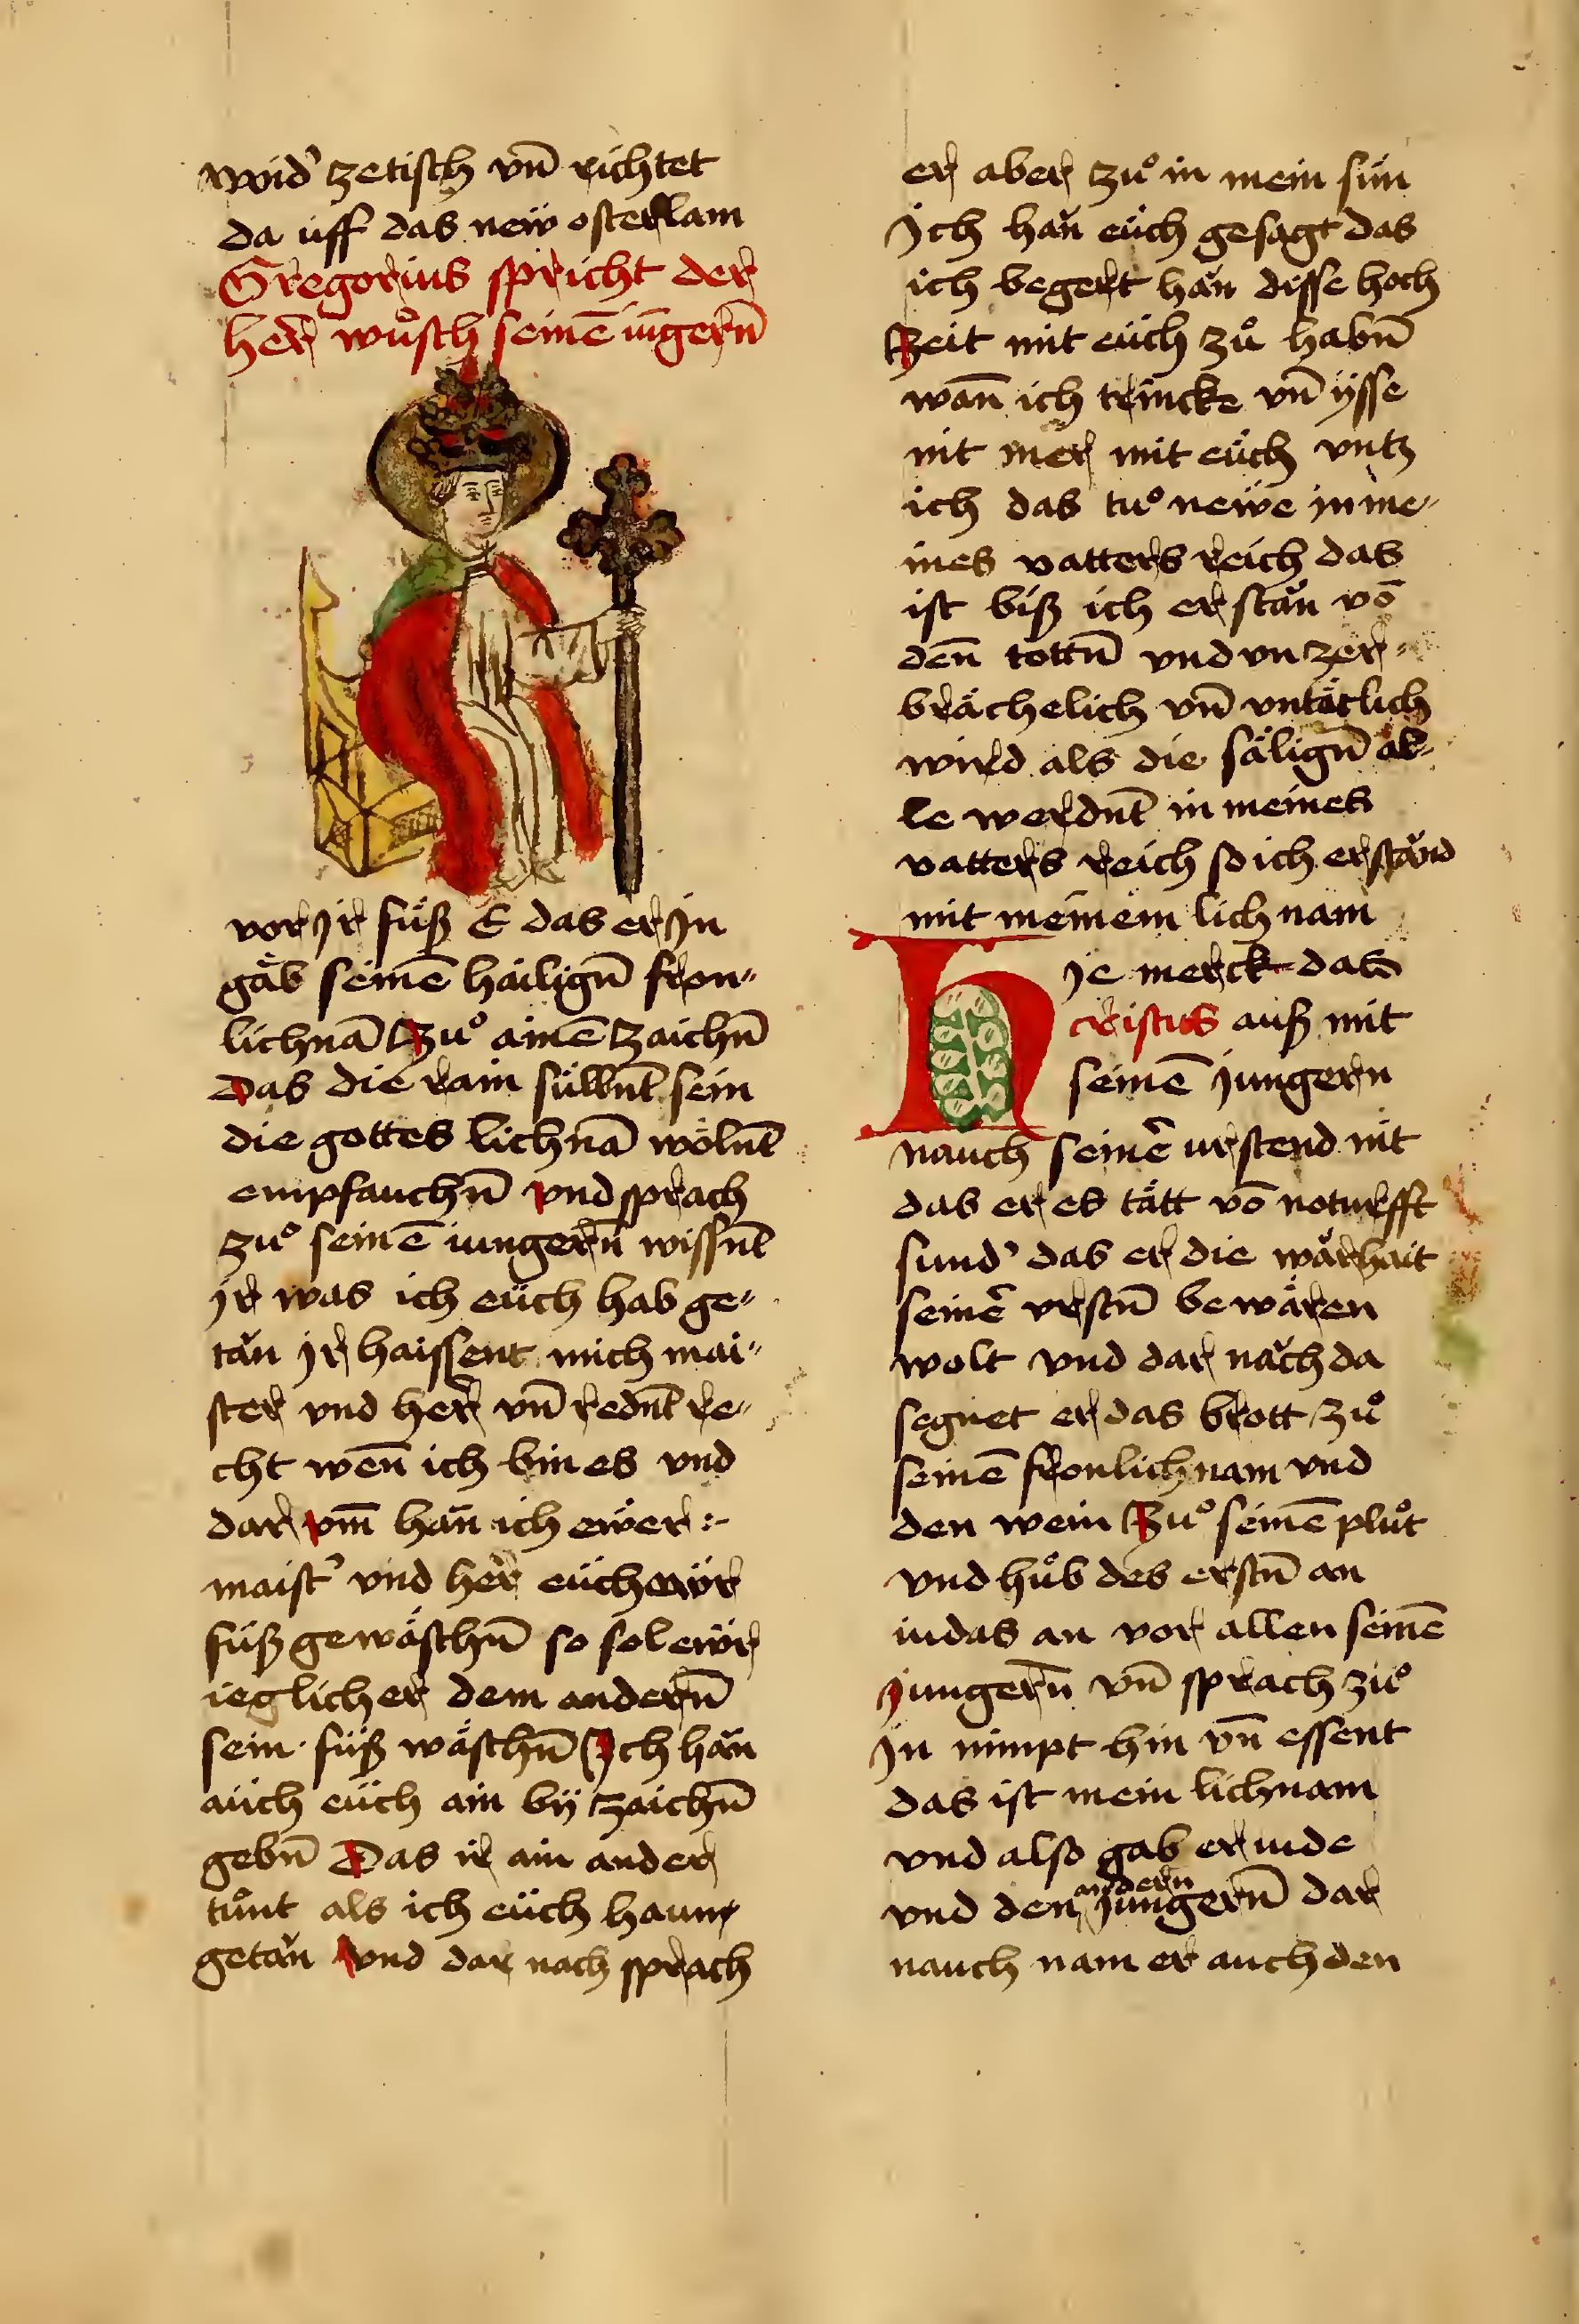 wid' zetisch vn̄ richtet
da uff das new̎ osterlam
Gregorius spricht der
her̄ wůsch seinē iūgern̄
vor Jr fůß E das er Jn
gäb seinē hailign̄ fron„
lichnā Zuͦ ainē zaichn̄
Das die rain süllnt̄ sein
die gottes lichnā wöln̄t
empfauchn̄ vnd sprach
zuͦ seinē iungern̄ wissn̄t
Jr was ich eüch hab ge„
tän Jr haissent mich mai„
ster vnd her̄ vn̄ redn̄t re„
cht wen̄ ich bin es vnd
dar vm̄ hän ich ewer :~
maist' vnd her̄ eüch ewr̈
füß gewäschn̄ so sol ewr̈
ieglicher dem andern̄
sein füß wäschn̄ Jch hän
aüch eüch ain bÿ zaichn̄
gebn̄ Das ir ain ander
tůnt als ich eüch haun
getän Vnd dar nach sprach
er aber zuͦ in mein sün
Jch hän eüch gesagt das
ich begert hän disse hoch
Zeit mit eüch zuͦ habn̄
wan̄ ich trincke vn̄ ÿsse
nit mer mit eüch vntz
ich das tuͦ newe in me„
ines vatters reich das
ist biß ich erstän vō
den̄ tottn̄ vnd vn zer„
brächelich vn̄ vntätlich
wird als die sälign̄ al„
le werdnt̄ in meines
vatters reich so ich erständ
mit meinem lichnam
Hie merck das
cristus auß mit
seinē Jungern
nauch seiner̄ urstend nit
das er es tätt vō noturfft
sund' das er die wärhait
seiner̄ vrstn̄ bewären
wolt vnd dar näch da
segnet er das brott zuͦ
seinē fronlichnam vnd
den wein Zuͦ seinē plůt
vnd hůb des erstn̄ an
iudas an vor allen seinē
Jungern̄ vn̄ sprach zuͦ
Jn nimpt hin vn̄ essent
das ist mein lichnam
vnd also gab er iude
vnd den andern Jungern̄ dar
nauch nam er auch den